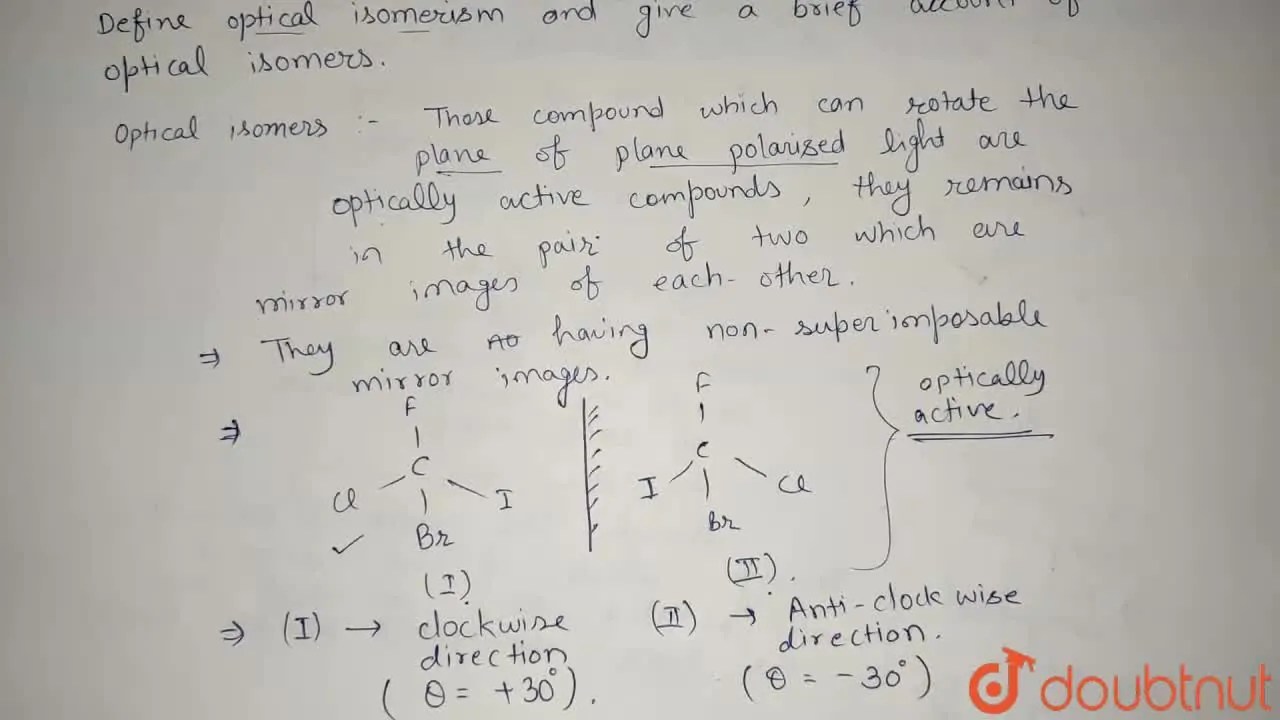 Define optical isomerism and give a brief account of
optical isomers.
Optical isomers :- Those compound which can rotate the
plane of plane polarised light are
optically active compounds, they remains
in the pair of two which are
mirror images of each-other.
⇒ They are having non-superimposable
mirror images.
optically
active.
⇒
F
C
Cl I
Br
(I)
F
C
I Cl
Br
(II).
✓
⇒ (I) → clockwise
direction
(θ = +30°).
(II) → Anti-clockwise
direction.
(θ = -30°)
doubtnut